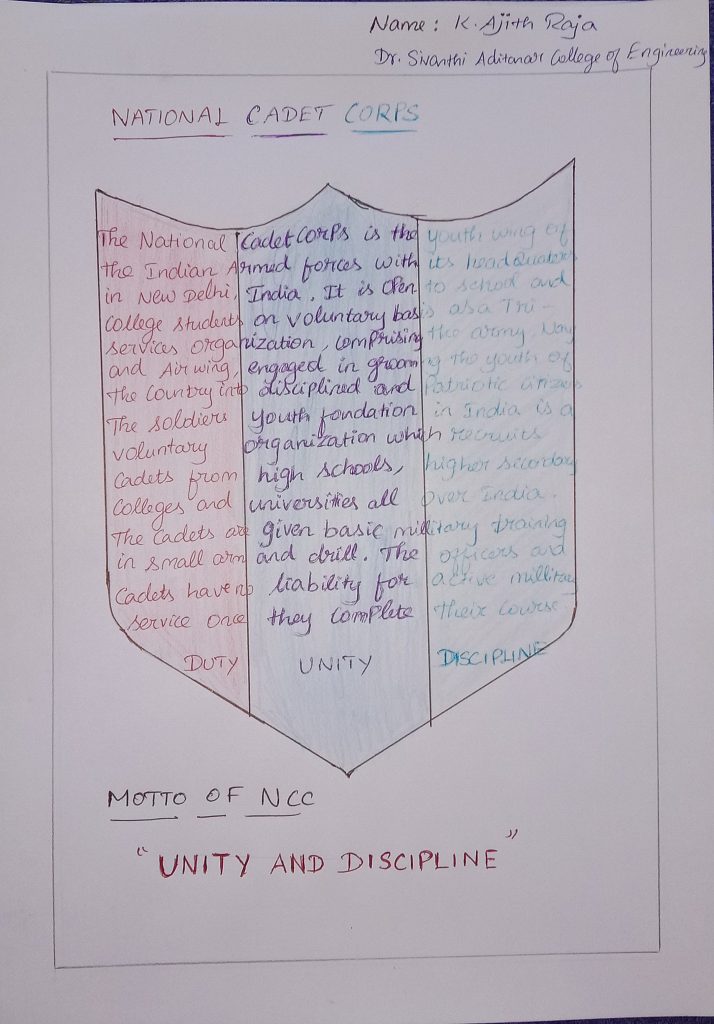 Name: K. Ajith Raja
Dr. Sivanthi Aditanar College of Engineering
NATIONAL CADET CORPS
The National Cadet Corps is the youth wing of
the Indian Armed forces with its headquaters
in New Delhi, India. It is Open to school and
College students on voluntary basis as a Tri-
services organization, comprising the army, Navy
and Air wing, engaged in grooming the youth of
the Country into disciplined and Patriotic citizens
The soldiers youth fondation in India is a
voluntary organization which recruits
Cadets from high schools, higher secondary
Colleges and universities all over India.
The Cadets are given basic military training
in small arm and drill. The officers and
Cadets have no liability for active millitary
service once they complete their course.
DUTY UNITY DISCIPLINE
MOTTO OF NCC
"UNITY AND DISCIPLINE"